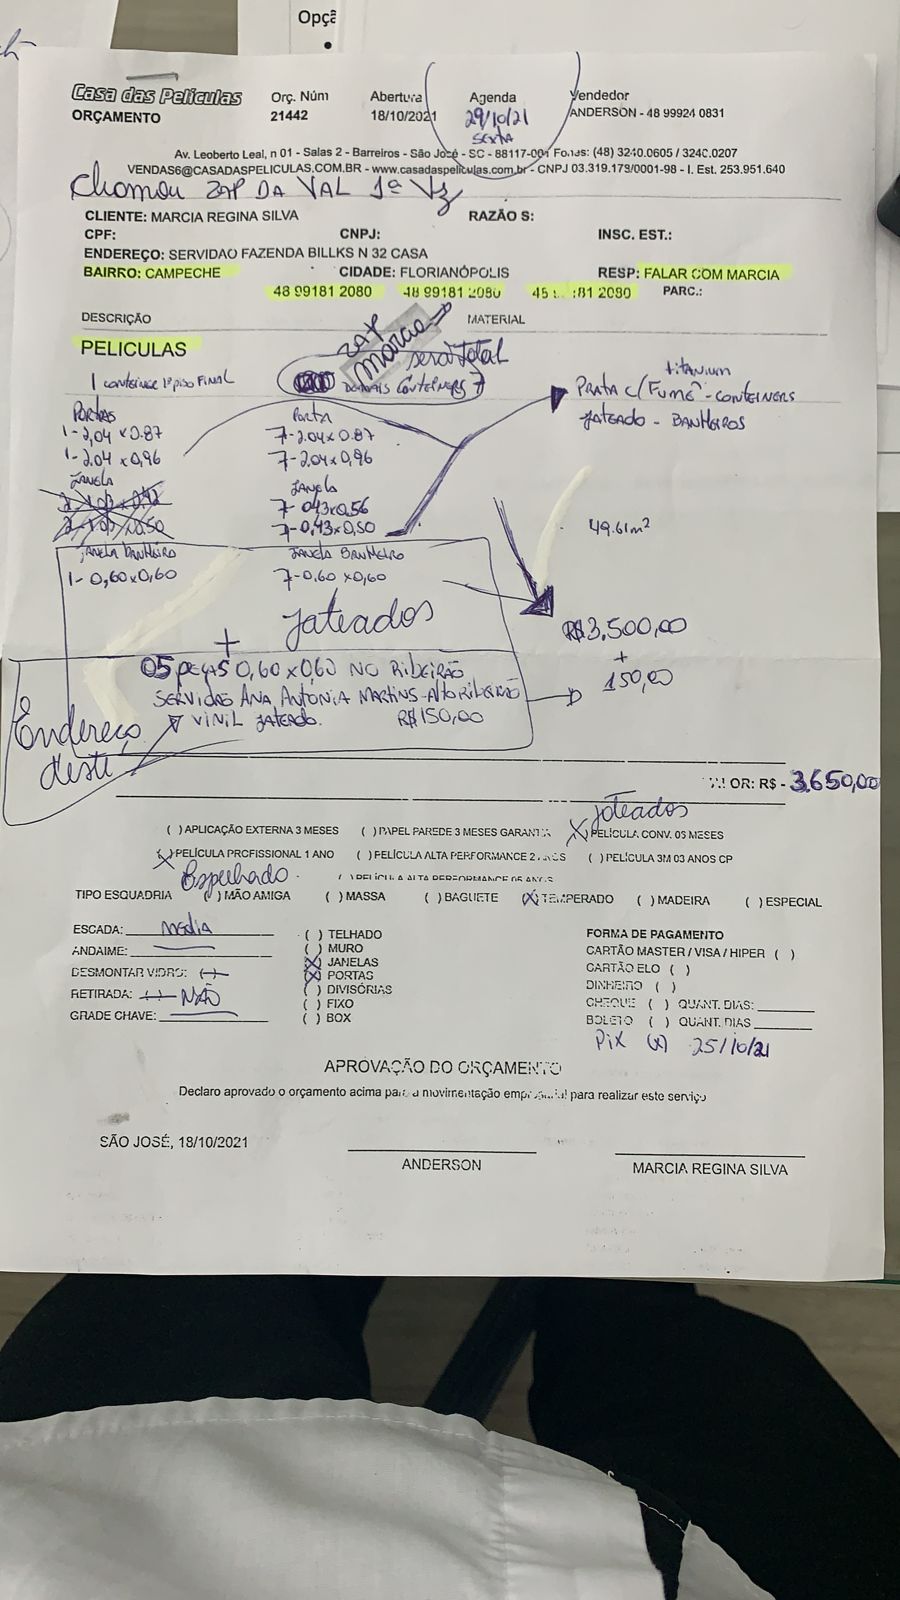 Opçã
Casa das Películas
ORÇAMENTO
Orç. Núm
21442
Abertura
18/10/2021
Agenda
29/10/21
SEXTA
Vendedor
ANDERSON - 48 99924 0831
Av. Leoberto Leal, n 01 - Salas 2 - Barreiros - São José - SC - 88117-001 Fones: (48) 3240.0605 / 3240.0207
VENDAS6@CASADASPELICULAS.COM.BR - www.casadaspeliculas.com.br - CNPJ 03.319.179/0001-98 - I. Est. 253.951.640
Chamou ZAP DA VAL 1ª Vz
CLIENTE: MARCIA REGINA SILVA RAZÃO S:
CPF: CNPJ: INSC. EST.:
ENDEREÇO: SERVIDAO FAZENDA BILLKS N 32 CASA
BAIRRO: CAMPECHE CIDADE: FLORIANÓPOLIS RESP: FALAR COM MARCIA
48 99181 2080 48 99181 2080 181 2080 PARC.:
DESCRIÇÃO MATERIAL
ZAP
Marcia
PELICULAS
será total
1 CONTEINER 1º PISO FINAL
DEMAIS CONTEINERS 7
titanium
PRATA C/ FUMÊ - CONTEINERS
JATEADO - BANHEIROS
PORTAS PORTA
1-2,04 x 0.87 7-2.04 x 0.87
1-2.04 x 0,96 7-2.04 x 0,96
JANELA JANELA
7-0,43 x 0,56
7-0,43 x 0,50
49.61m²
JANELA BANHEIRO JANELA BANHEIRO
1-0,60 x 0,60 7-0,60 x 0,60
Jateados
R$3.500,00
+
+
150,00
05 PEÇAS 0,60 x 0,60 NO RIBEIRÃO
SERVIDÃO ANA ANTONIA MARTINS - ALTO RIBEIRÃO
VINIL JATEADO. R$150,00
Endereço
deste
OR: R$ - 3.650,00
Jateados
( ) APLICAÇÃO EXTERNA 3 MESES ( ) PAPEL PAREDE 3 MESES GARANTIA (X) PELÍCULA CONV. 03 MESES
(X) PELÍCULA PROFISSIONAL 1 ANO ( ) PELÍCULA ALTA PERFORMANCE 2 ANOS ( ) PELÍCULA 3M 03 ANOS CP
Espelhado
( ) PELÍCULA ALTA PERFORMANCE 05 ANOS
TIPO ESQUADRIA ( ) MÃO AMIGA ( ) MASSA ( ) BAGUETE (X) TEMPERADO ( ) MADEIRA ( ) ESPECIAL
ESCADA: média
ANDAIME:
DESMONTAR VIDRO:
RETIRADA: NÃO
GRADE CHAVE:
( ) TELHADO
( ) MURO
(X) JANELAS
(X) PORTAS
( ) DIVISÓRIAS
( ) FIXO
( ) BOX
FORMA DE PAGAMENTO
CARTÃO MASTER / VISA / HIPER ( )
CARTÃO ELO ( )
DINHEIRO ( )
CHEQUE ( ) QUANT. DIAS:
BOLETO ( ) QUANT. DIAS
PIX (X) 25/10/21
APROVAÇÃO DO ORÇAMENTO
Declaro aprovado o orçamento acima para a movimentação empresarial para realizar este serviço
SÃO JOSÉ, 18/10/2021
ANDERSON
MARCIA REGINA SILVA